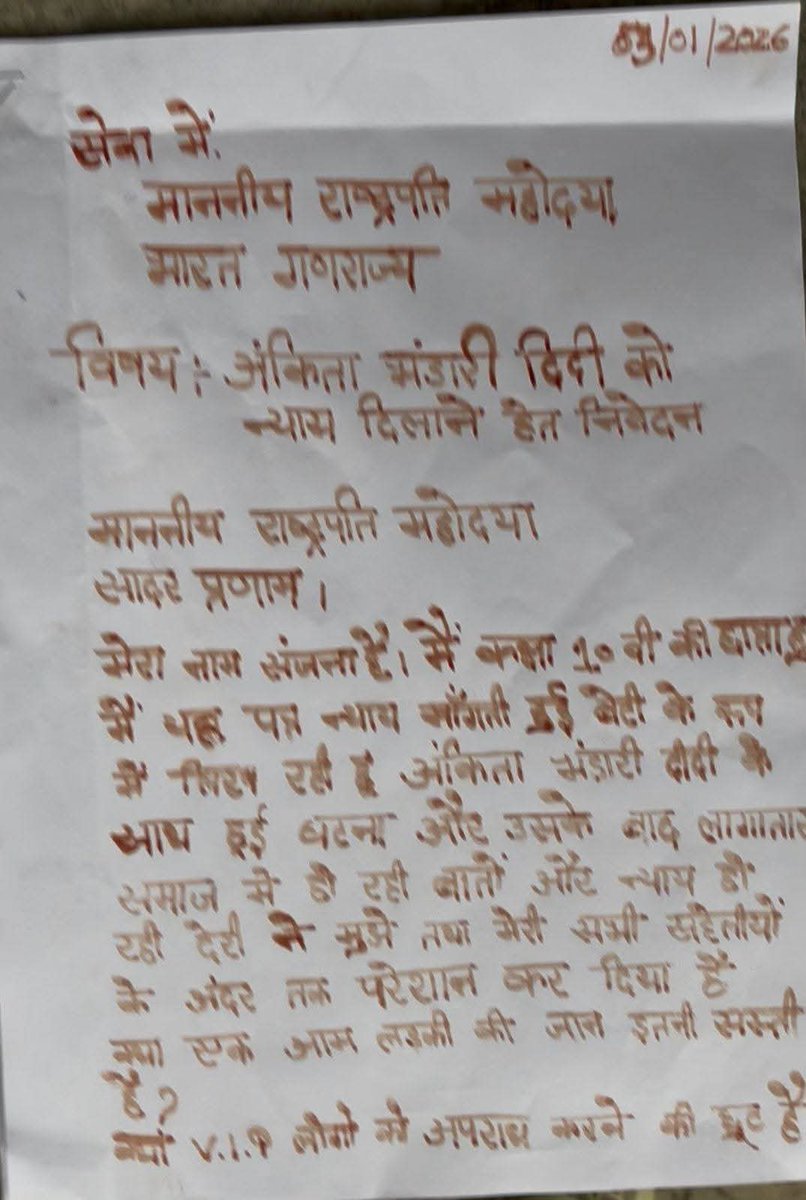 03/01/2026
सेवा में,
माननीय राष्ट्रपति महोदया,
भारत गणराज्य
विषय :- अंकिता भंडारी दिदी को
न्याय दिलाने हेत निवेदन
माननीय राष्ट्रपति महोदया
सादर प्रणाम ।
मेरा नाम संजना है। मैं कक्षा 10 वी की छात्रा हूं
मैं यह पत्र न्याय माँगती हुई बेटी के रूप
में लिख रही हूं अंकिता भंडारी दीदी के
साथ हुई घटना और उसके बाद लागातार
समाज में हो रही बातों और न्याय हो
रही देरी ने मुझे तथा मेरी सभी सहेलीयों
के अंदर तक परेशान कर दिया है
क्या एक आम लडकी की जान इतनी सस्ती
है?
क्यों V.I.P लोगो को अपराध करने की छूट है